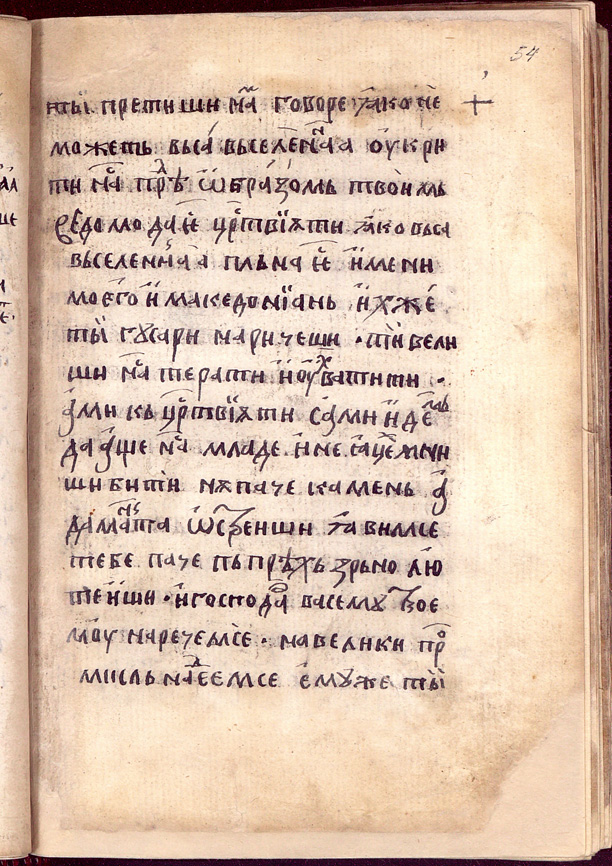 54
ты претиши на говоре ꙗко не
можеть вьса вьселеннаа ѹкри
ти на прѣд ѡбразомь твоимь
цртвїꙗти ꙗко вьса
вьселеннаа пльна ѥ имени
моего и македонїань ихже
ты гѹсари наричеши · ти вели
ши на терати и ѹхватити ·
ами кь цртвїꙗти сами идем
да аще на младе и не мни
ши бити нь паче камень а
даманта ꙗвимсе
тебе паче пьпрѣхь зрьно лю
теиши · и господа васемѹ твое
моу наречемсе · на велики про
мисль надеемсе емѹже ты